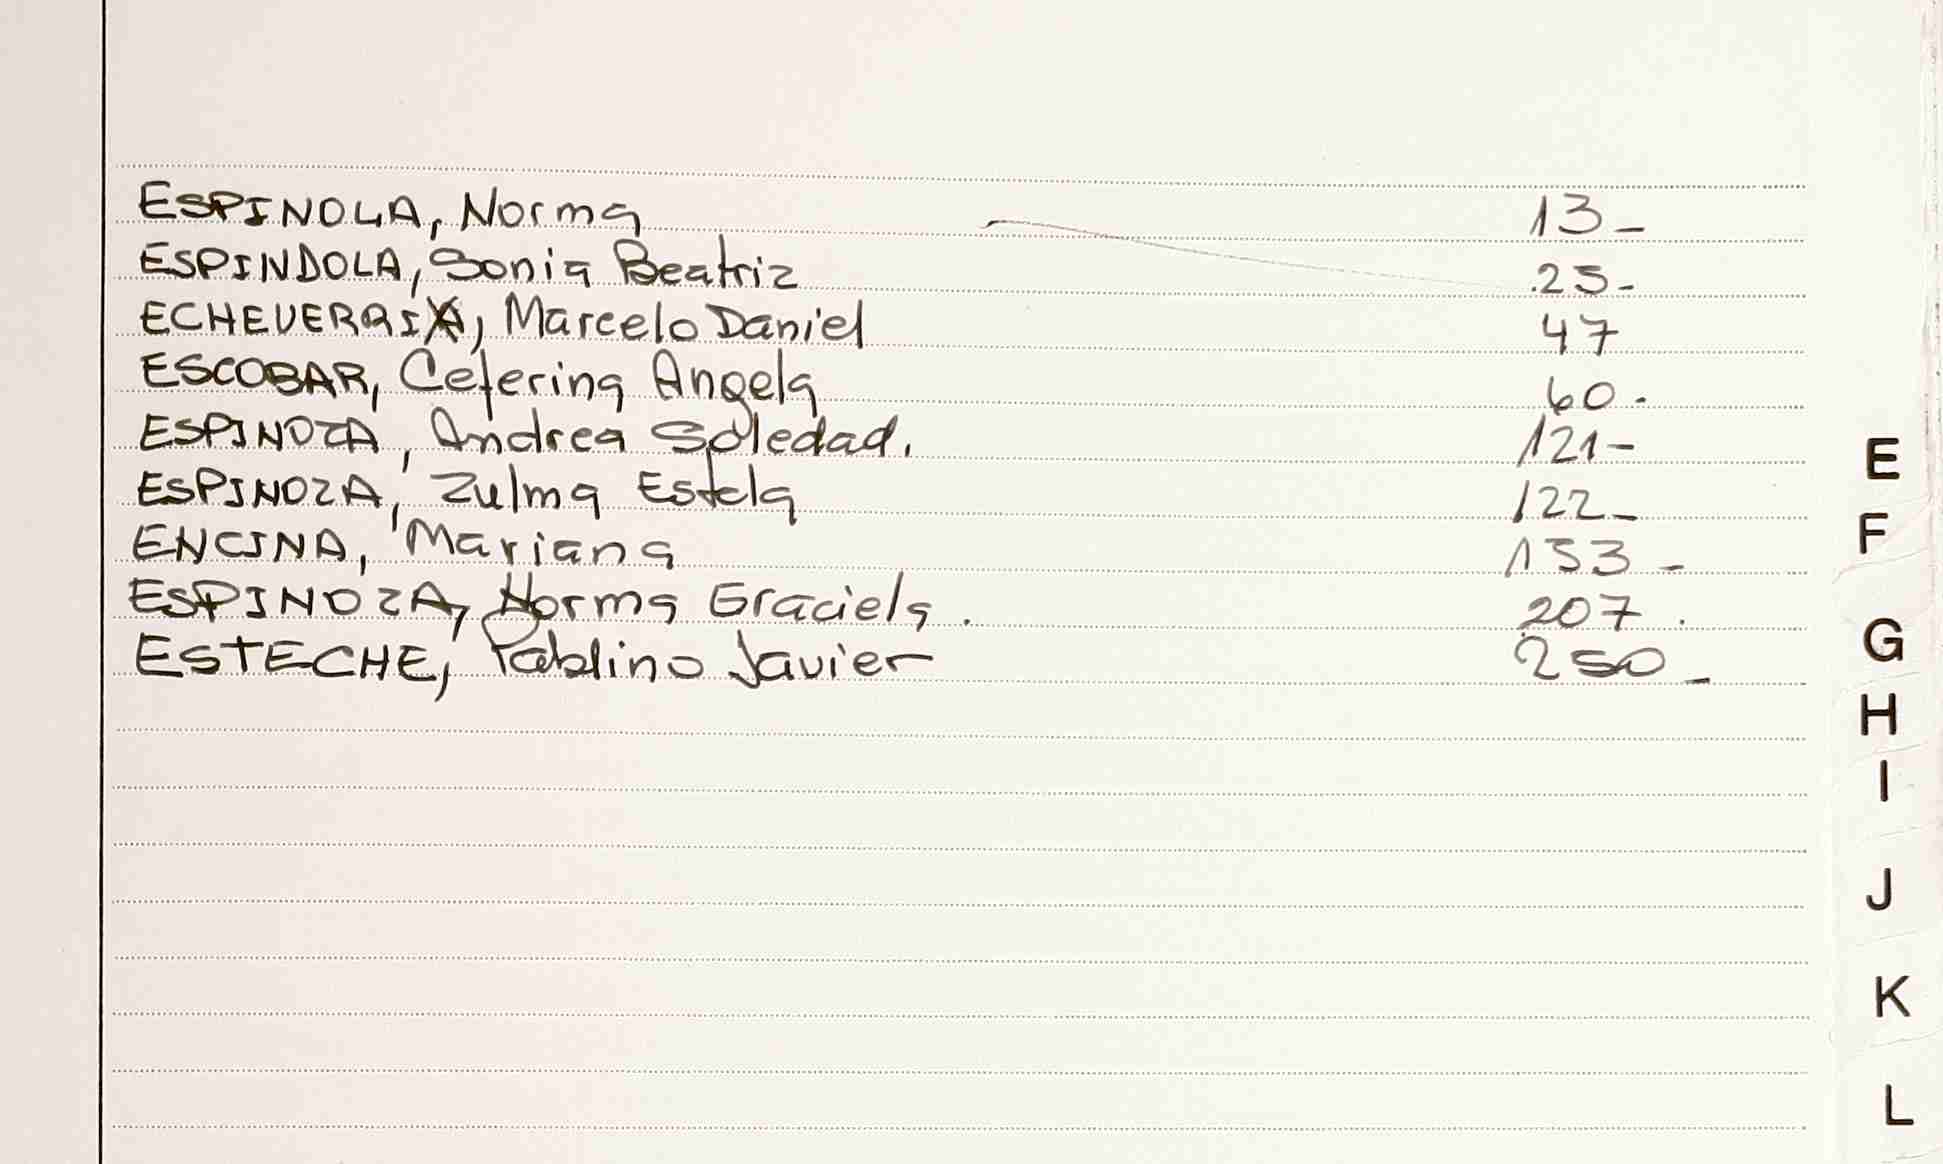 ESPINOLA, Norma 13-
ESPINDOLA, Sonia Beatriz 25-
ECHEVERRIA, Marcelo Daniel 47
ESCOBAR, Ceferina Angela 60.
ESPINOZA, Andrea Soledad. 121-
ESPINOZA, Zulma Estela 122-
ENCINA, Mariana 133-
ESPINOZA, Norma Graciela. 207.
ESTECHE, Pablino Javier 250-
E
F
G
H
I
J
K
L